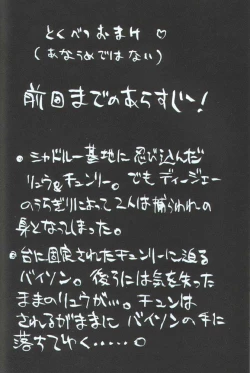 とくべつおまけ ♡
(あなうめではない)
前回までのあらすじ〜!
● シャドルー基地に忍び込んだ
リュウ&チュンリー。でもディージェー
のうらぎりによって2人は捕らわれの
身となってしまった。
● 台に固定されたチュンリーに迫る
バイソン。後ろには気を失った
ままのリュウが…。チュンは
されるがままに バイソンの手に
落ちてゆく……。